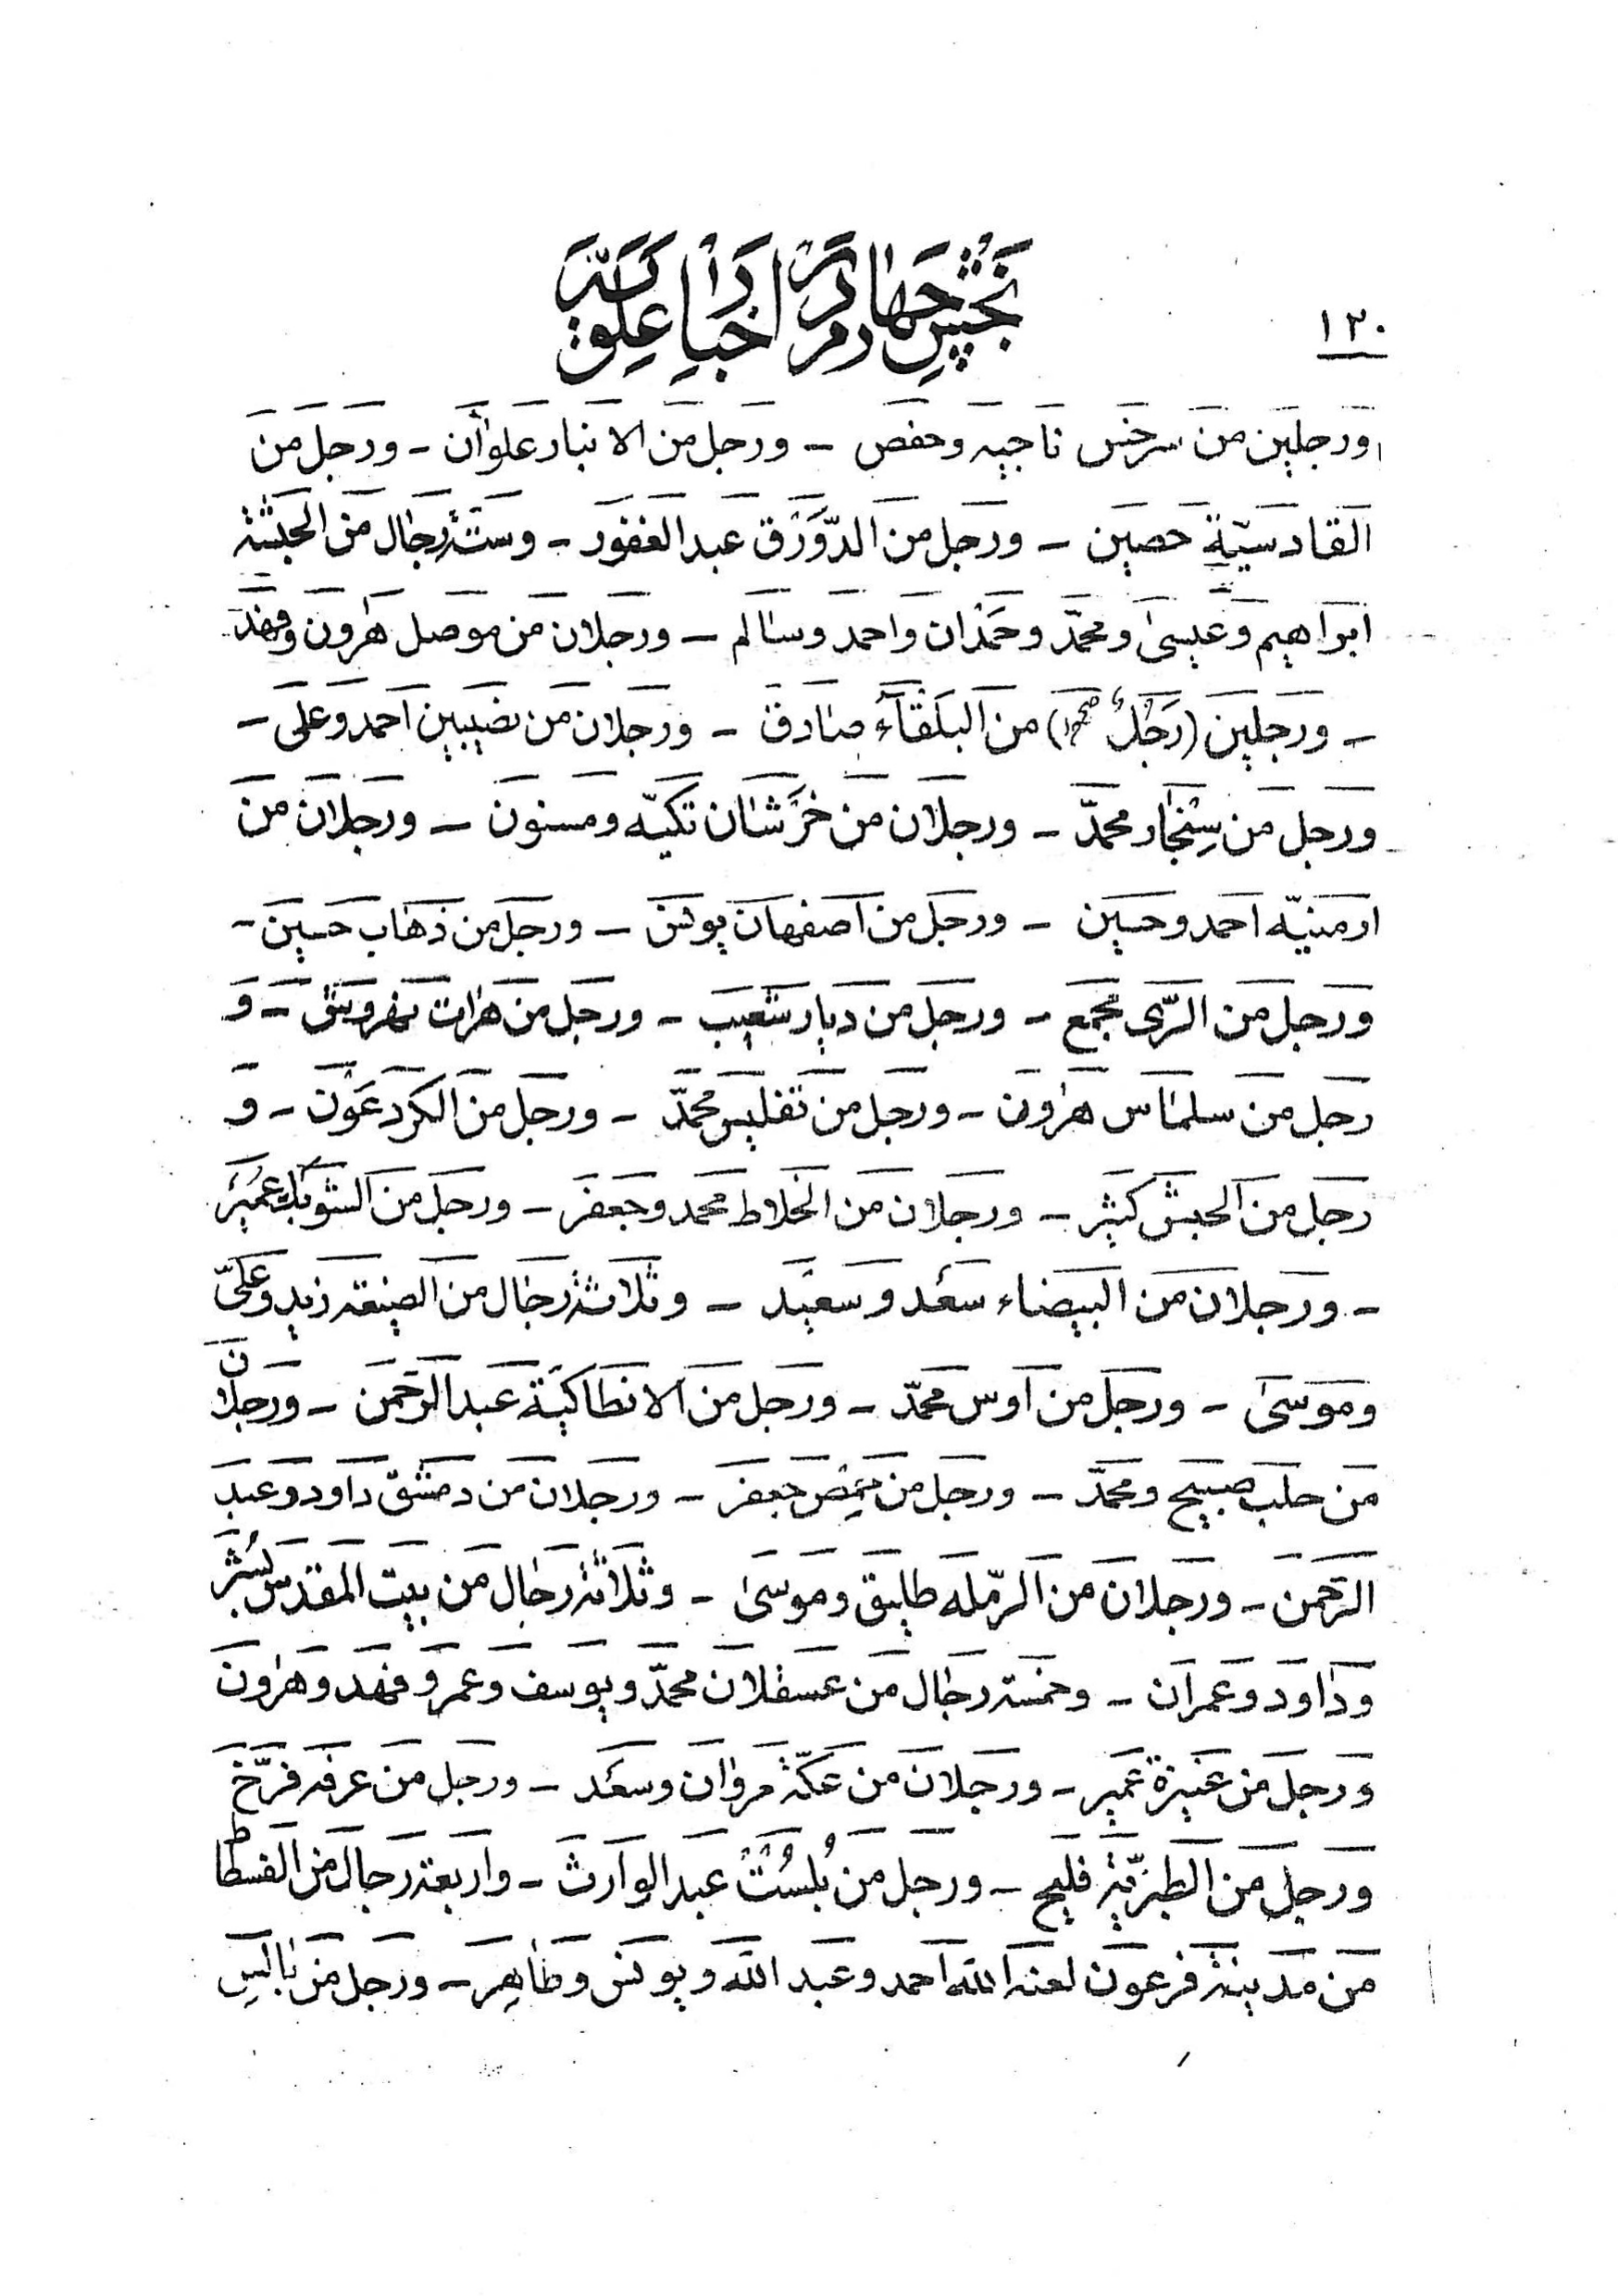 بخش چهارم در اخبار علویه
۱۲۰
ورجلین من سرخس ناجیه وحفص – ورجل من الانبار علوان – ورجل من
القادسیّةِ حصین – ورجل من الدّورق عبد الغفور – وستّة رجال من الحبشة
ابراهیم وعیسیٰ ومحمّد وحمدان واحمد وسالم – ورجلان من موصل هٰرون وفهد
– ورجلین (رجلٌ) من البلقآء صادق – ورجلان من نصیبین احمد وعلی –
ورجل من سِنجار محمّد – ورجلان من خرشان تکیّه ومسنون – ورجلان من
ارمنیّه احمد وحسین – ورجل من اصفهان یونس – ورجل من ذهاب حسین –
ورجل من الرّی مجمع – ورجل من دیار شعیب – ورجل من هرات نهروش – و
رجل من سلماس هٰرون – ورجل من تفلیس محمّد – ورجل من الکرد عون – و
رجل من الحبش کثیر – ورجلان من الخلاط محمد وجعفر – ورجل من الشوبک عمیر
– ورجلان من البیضاء سعد وسعید – وثلاثة رجال من الضیعة زید وعلیّ
وموسیٰ – ورجل من اوس محمّد – ورجل من الانطاکیة عبد الرّحمن – ورجلان
من حلب صبیح ومحمّد – ورجل من حمص جعفر – ورجلان من دمشق داود وعبد
الرّحمن – ورجلان من الرّمله طلیق وموسیٰ – وثلاثة رجال من بیت المقدس بشر
وداود وعمران – وخمسة رجال من عسقلان محمّد ویوسف وعمر وفهد وهٰرون
ورجل من عنیزة عمیر – ورجلان من عکّة مروان وسعد – ورجل من عرفه فرّخ
ورجل من الطبریّة فلیح – ورجل من بُلسُت عبد الوارث – واربعة رجال من الفسطاط
من مدینة فرعون لعنه الله احمد وعبد الله ویونس وطاهر – ورجل من بالس